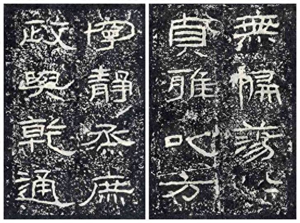 無偏蕩〻
貞雅以方
寧靜烝庶
政與乾通